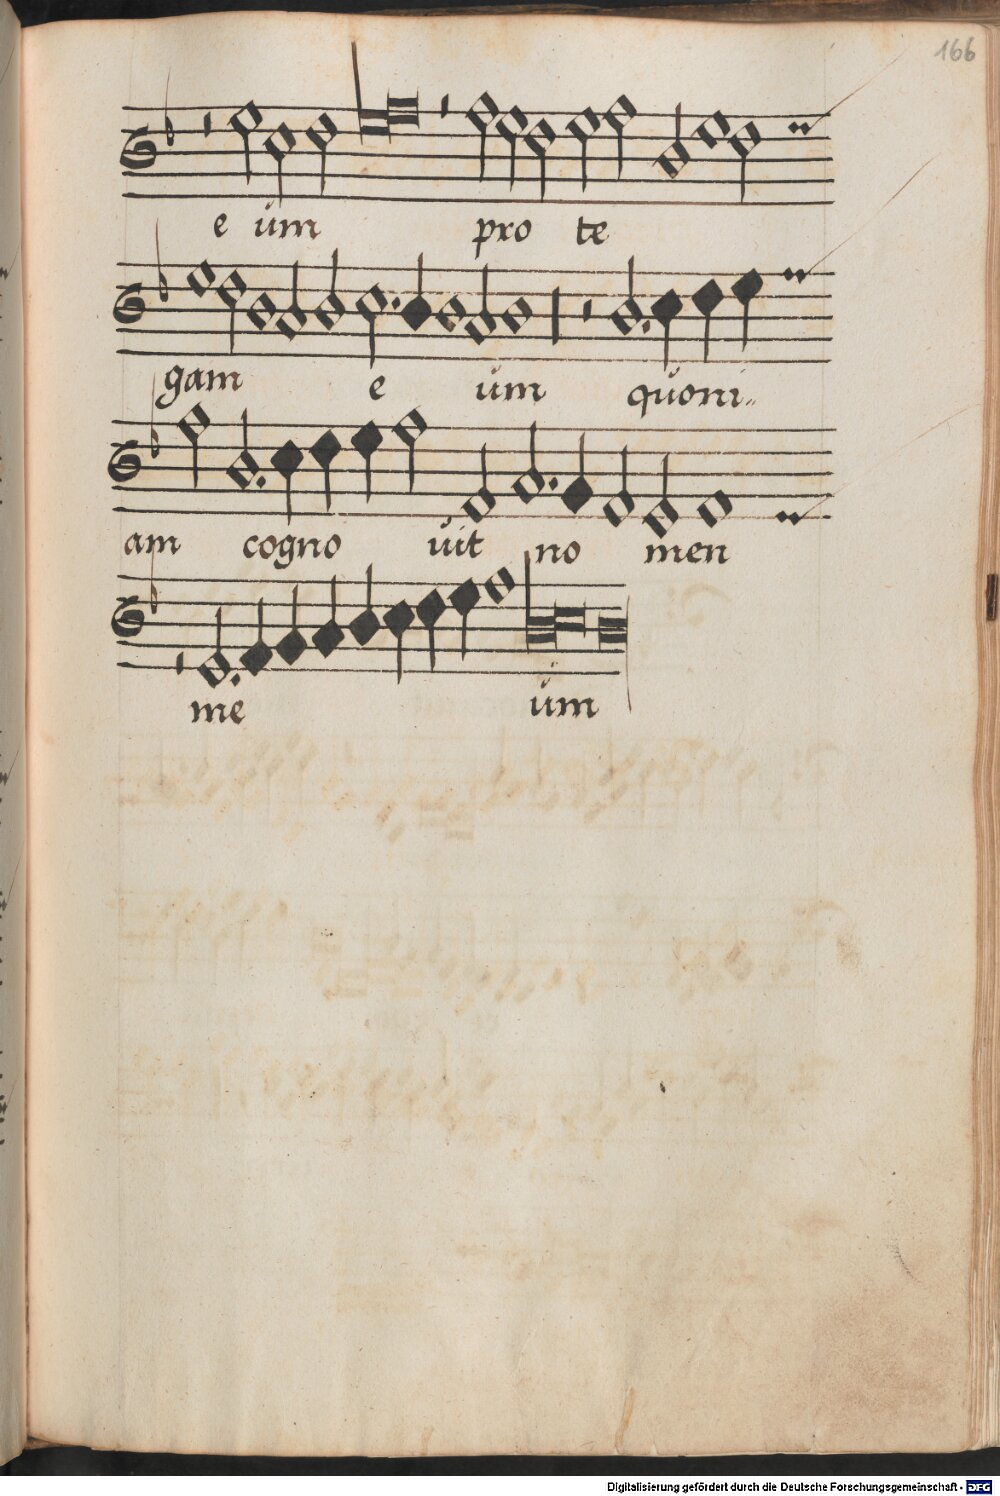 166
e um pro te
gam e um quoni..
am cogno uit no men
me um
Digitalisierung gefördert durch die Deutsche Forschungsgemeinschaft - DFG